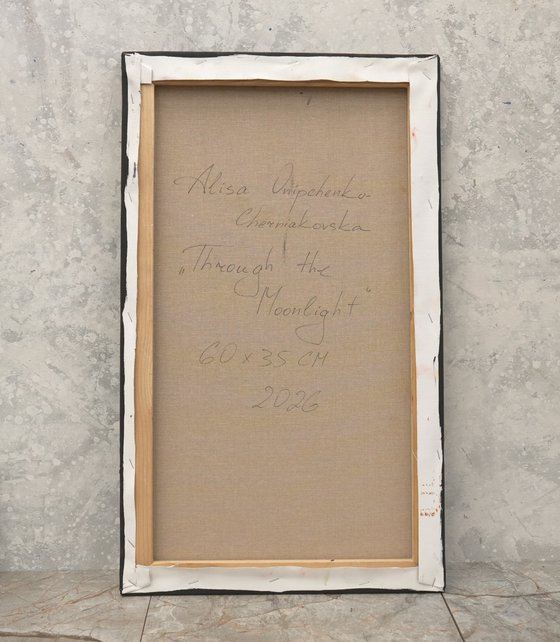 Alisa Onipchenko-
Cherniakovska
„Through the
Moonlight“
60 x 35 см
2026